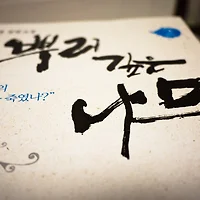 뿌리
깊은
나무
죽였나?"